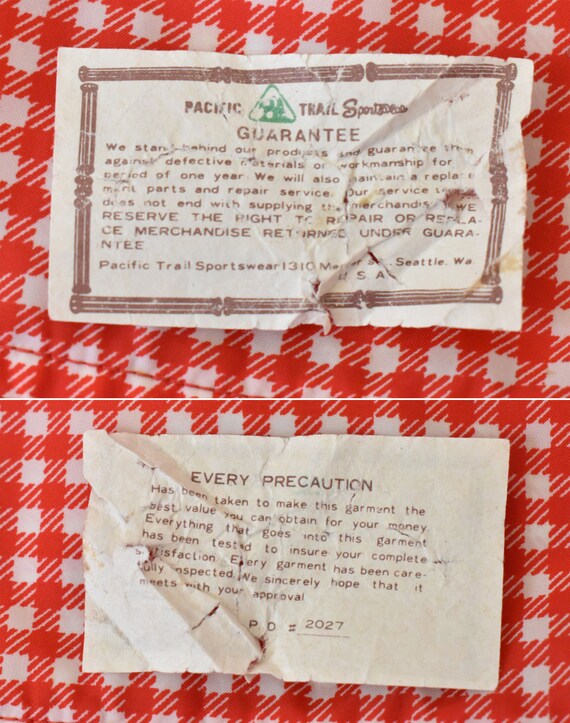 PACIFIC TRAIL Sportswear
GUARANTEE
We stand behind our products and guarantee them
against defective materials or workmanship for
period of one year We will also maintain a replace
ment parts and repair service. Our service
does not end with supplying the merchandise WE
RESERVE THE RIGHT TO REPAIR OR REPLA-
CE MERCHANDISE RETURNED UNDER GUARA-
NTEE
Pacific Trail Sportswear 1310 St., Seattle, Wa
U.S.A.
EVERY PRECAUTION
Has been taken to make this garment the
best value you can obtain for your money
Everything that goes into this garment
has been tested to insure your complete
satisfaction Every garment has been care-
fully inspected. We sincerely hope that it
meets with your approval
P. O # 2027